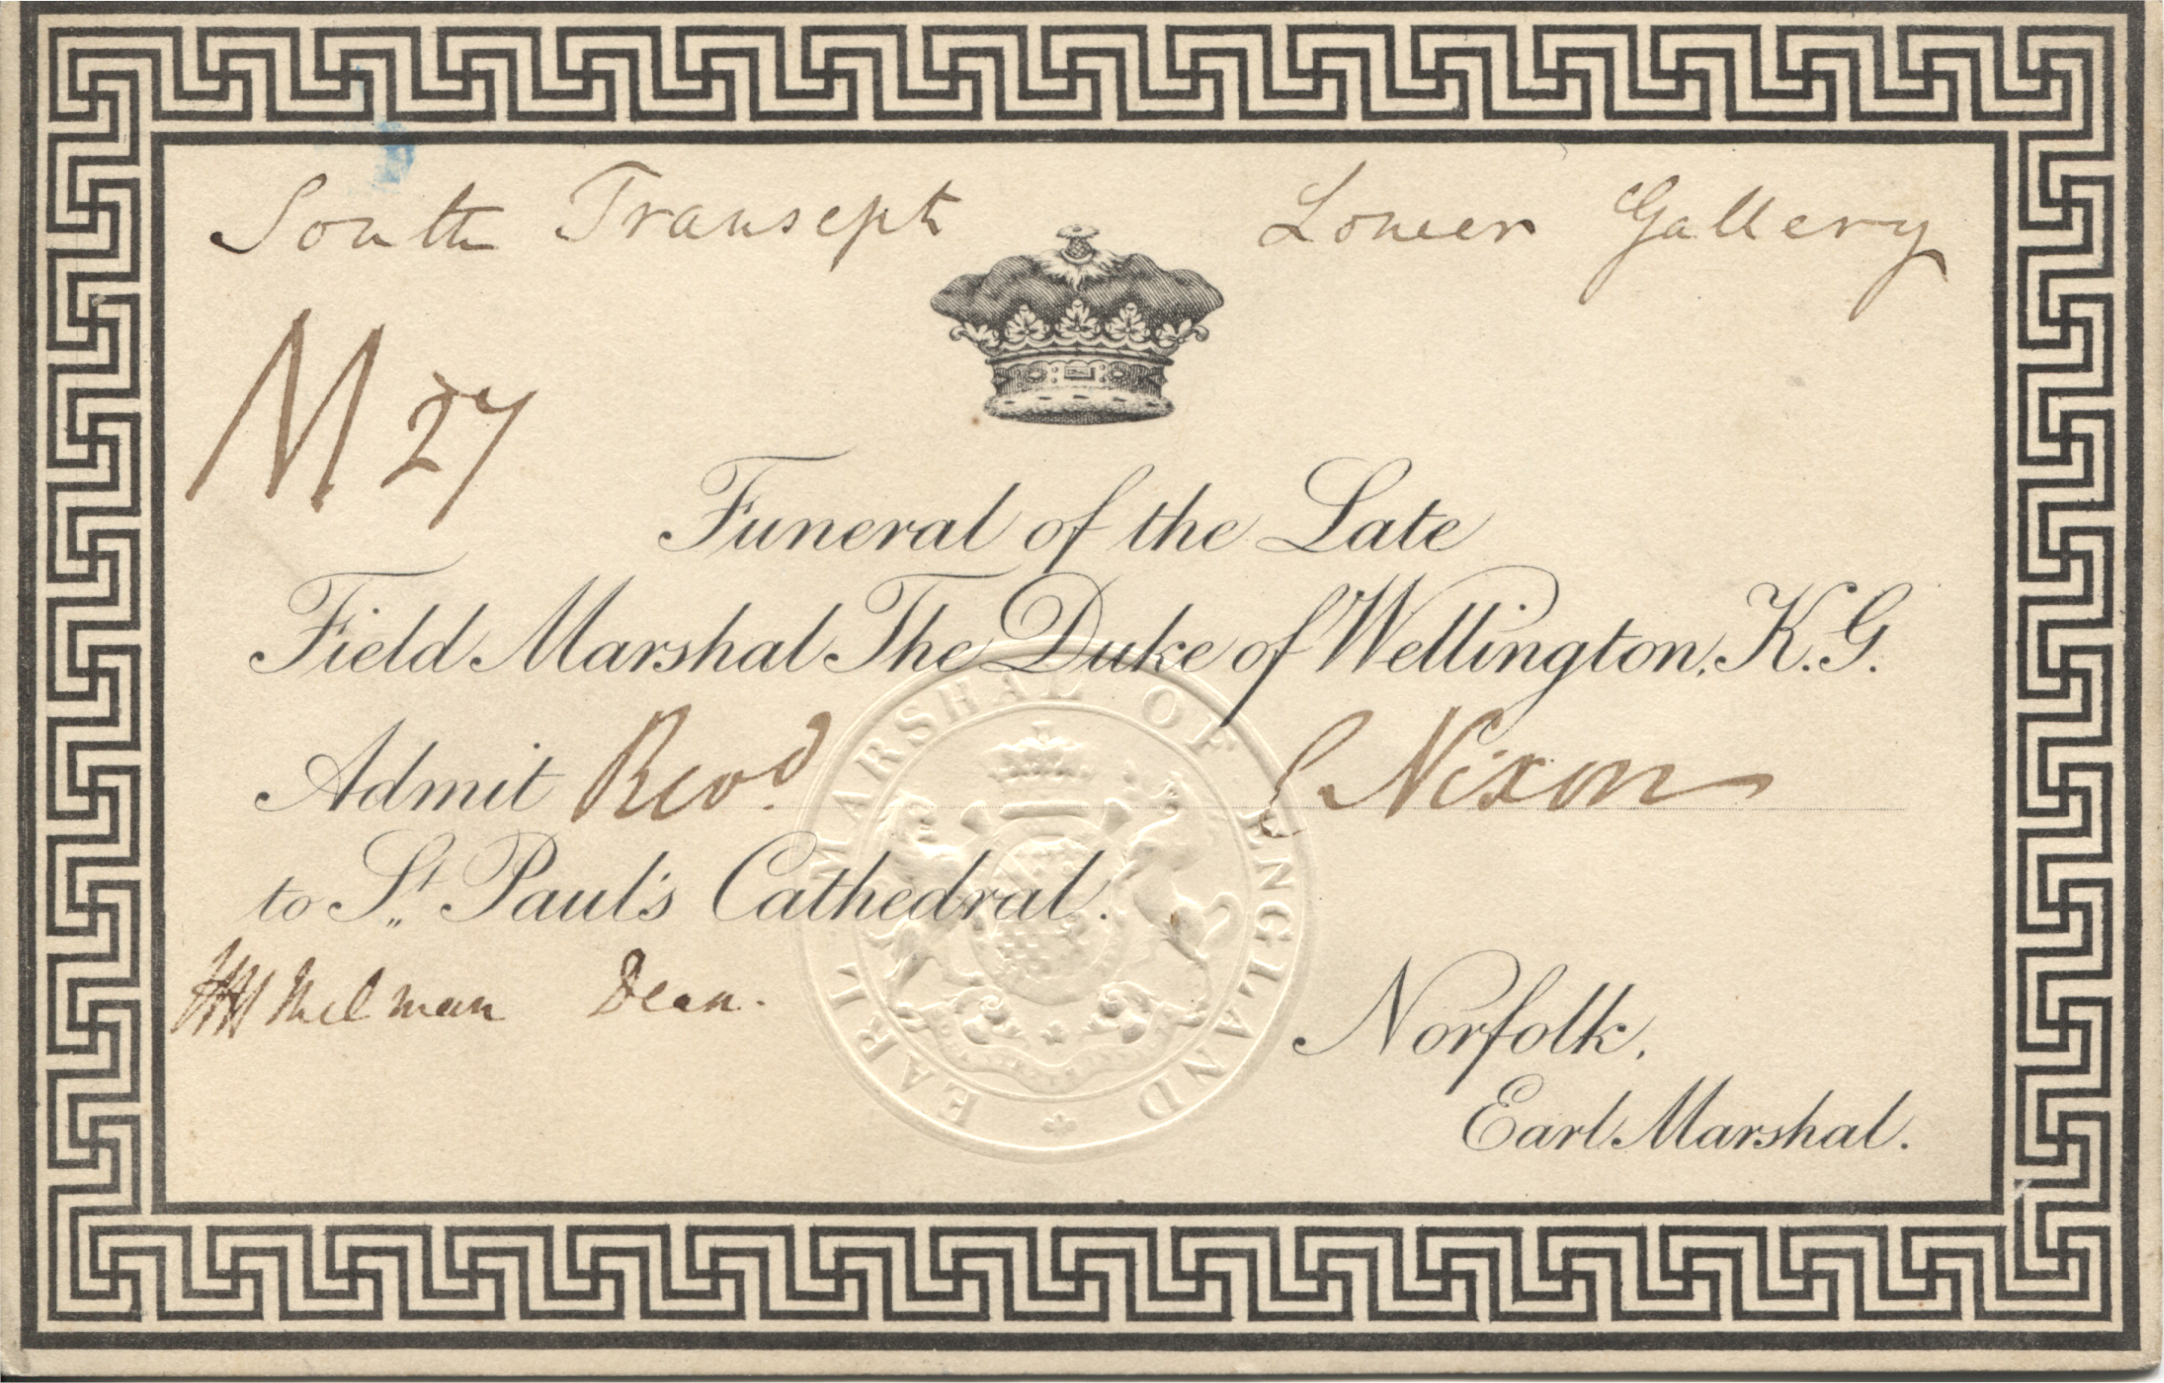 South Transept Lower Gallery
M 27
Funeral of the Late
Field Marshal The Duke of Wellington, K.G.
Admit Revd. C Nixon
to St. Paul's Cathedral.
HH Milman Dean.
Norfolk,
Earl Marshal.
EARL MARSHAL OF ENGLAND